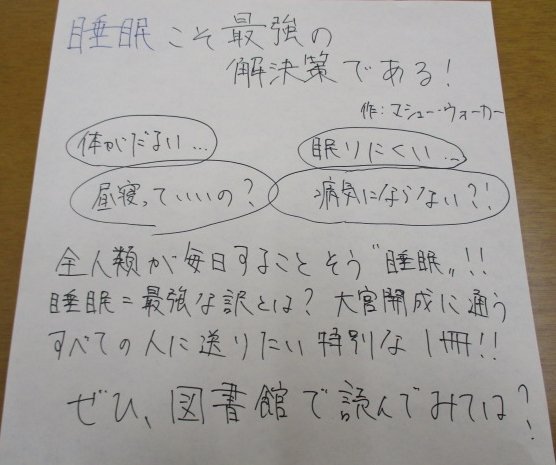 睡眠こそ最強の
解決策である!
作:マシュー・ウォーカー
体がだるい…
眠りにくい…
昼寝っていいの?
病気にならない?!
全人類が毎日すること そう"睡眠"!!
睡眠=最強な訳とは? 大宮開成に通う
すべての人に送りたい 特別な1冊!!
ぜひ、図書館で読んでみては?!